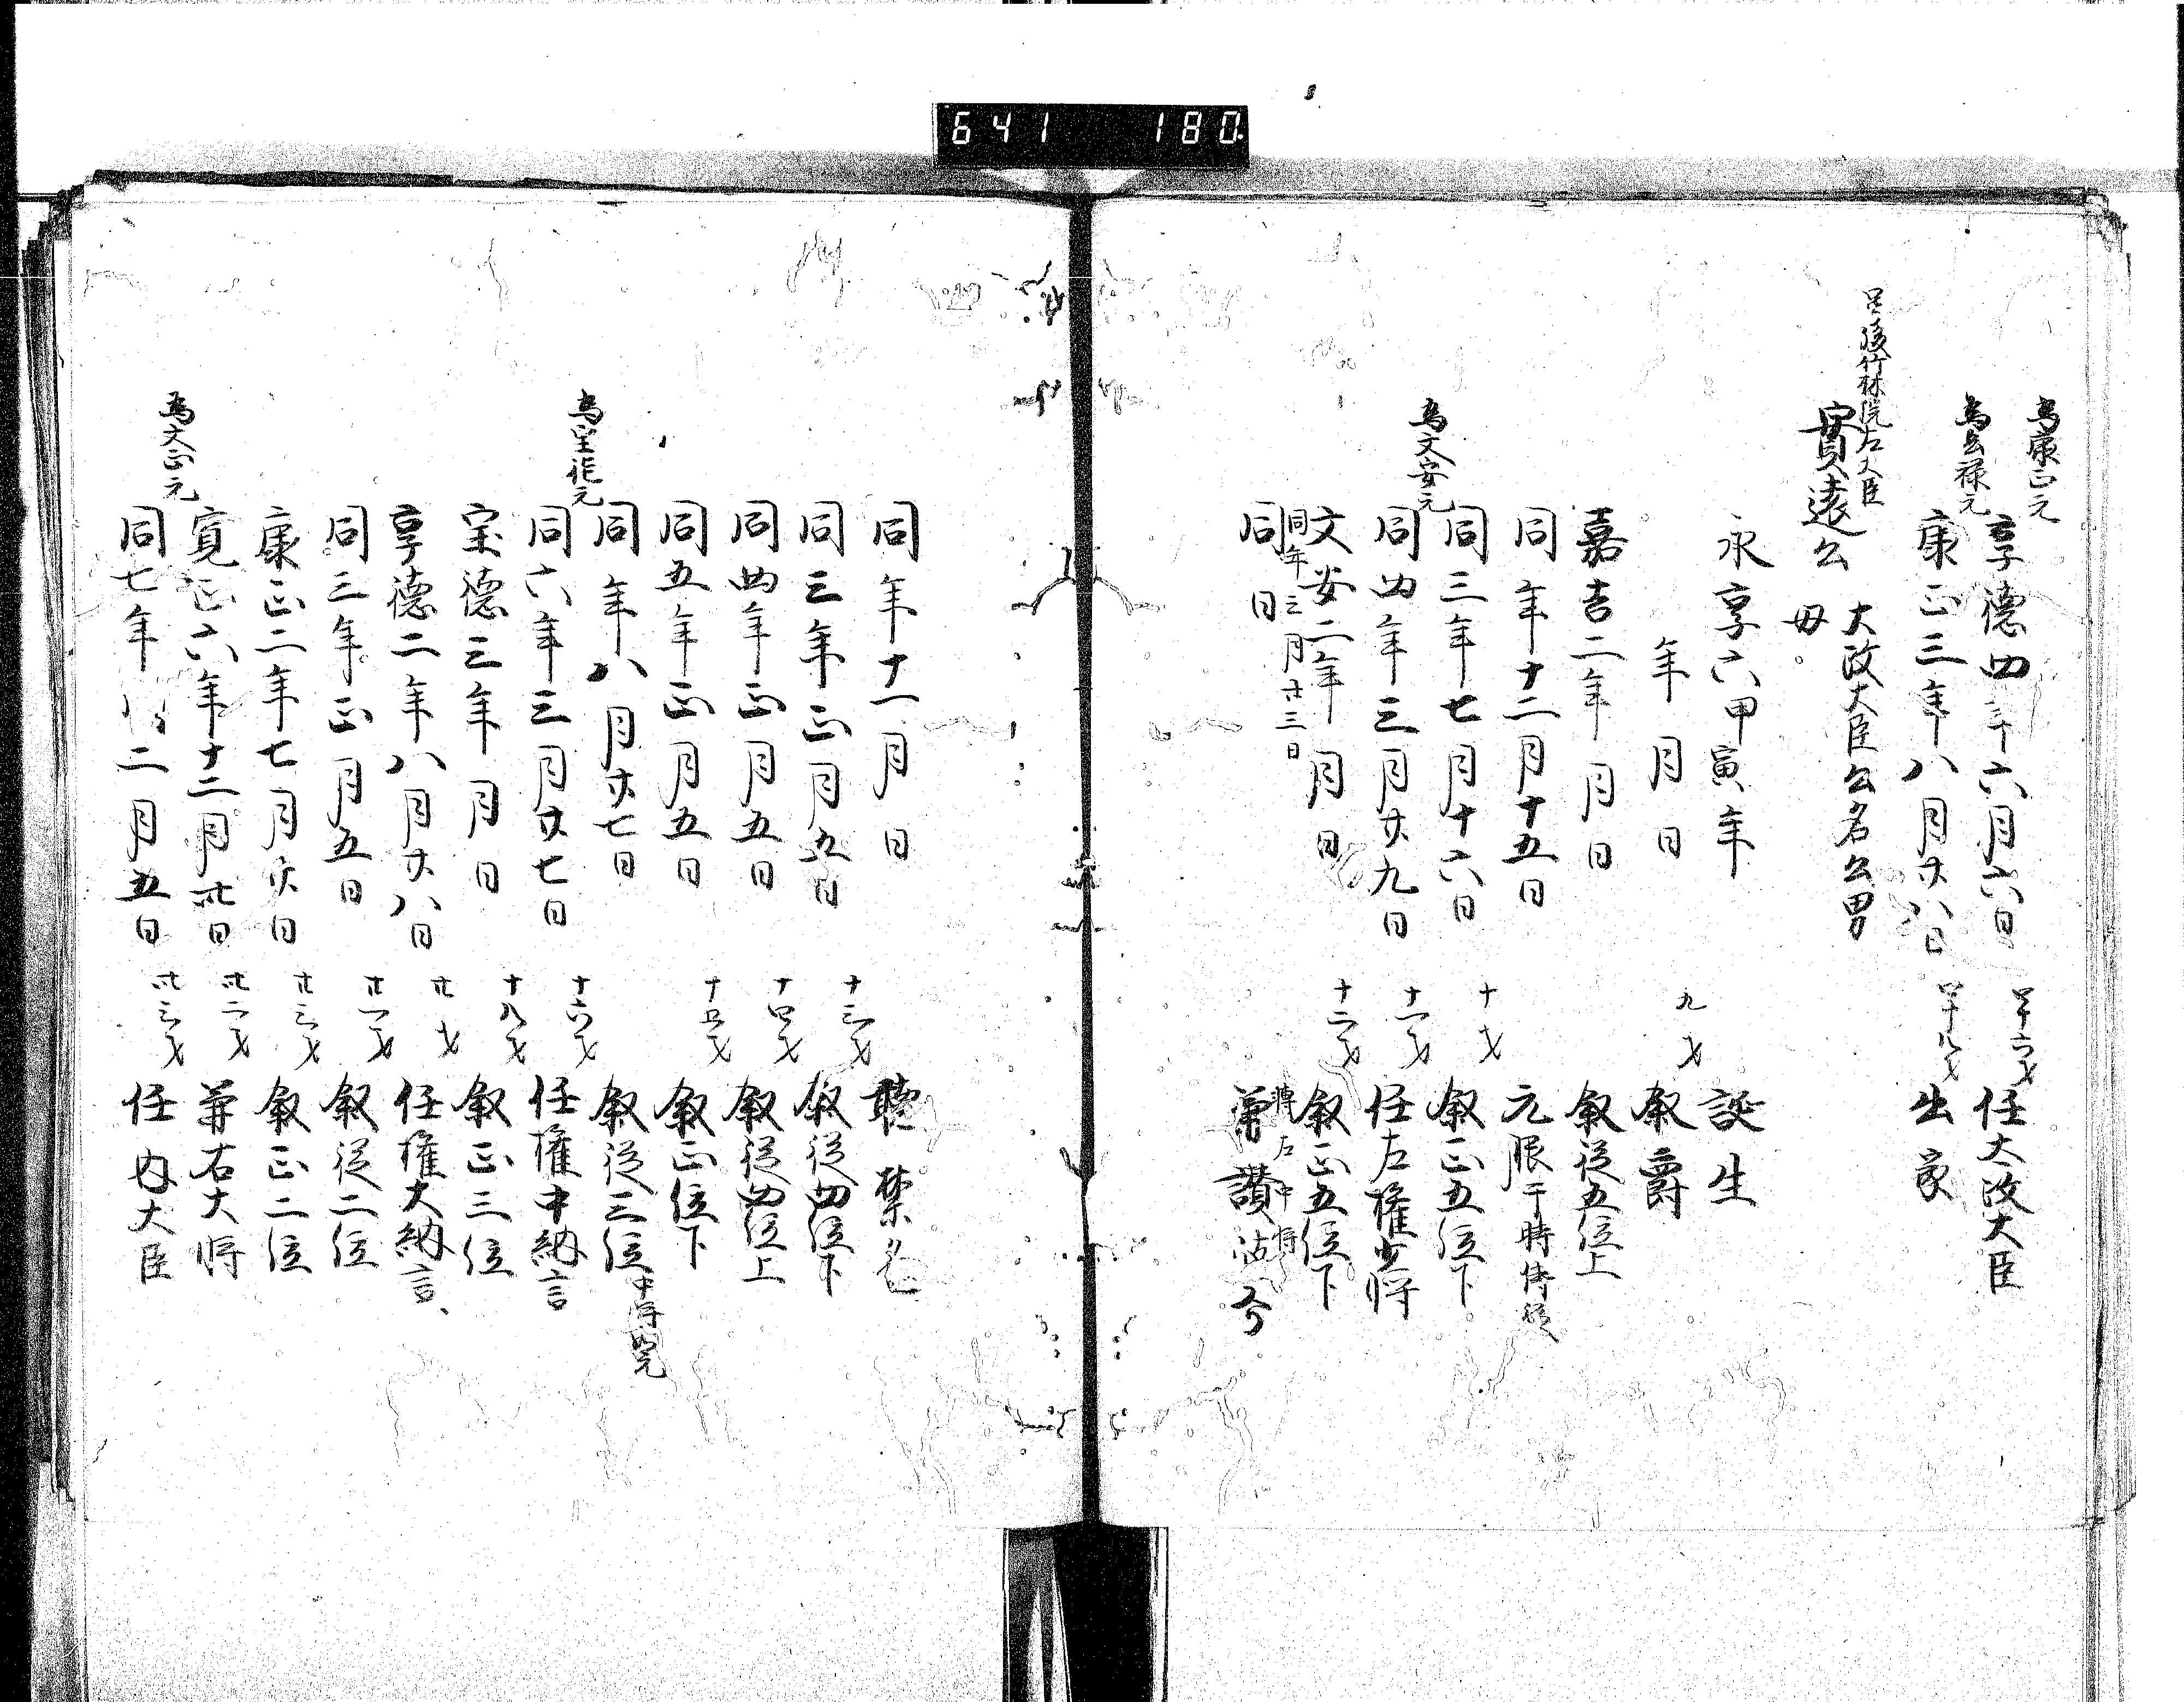 641 180
為康正元
享德四年六月六日 四十六才 任太政大臣
為長禄元
康正三年八月廿八日 四十八才 出家
号後竹林院左大臣
實遠公 太政大臣公名公男
母。
永享六甲寅年 誕生
年 月 日 九才 叙爵
嘉吉二年 月 日 叙従五位上
同年十二月十五日 元服于時侍従
同三年七月十六日 十才 叙正五位下
為文安元
同四年三月廿九日 十一才 任左権少将
文安二年 月 日 十二才 叙正五位下
同年三月廿三日 轉左中将
同 日 兼讃岐介
同年十一月 日 聴禁色
同三年正月五日 十三才 叙従四位下
同四年正月五日 十四才 叙従四位上
同五年正月五日 十五才 叙正位下
同年八月廿七日 叙従三位 中将如元
為宝徳元
同六年三月廿七日 十六才 任権中納言
宝徳三年 月 日 十八才 叙正三位
享徳二年八月廿八日 廿才 任権大納言、
同三年正月五日 廿一才 叙従二位
康正二年七月廿日 廿三才 叙正二位
寛正六年十二月卅日 卅二才 兼右大将
為文正元
同七年 二月五日 卅三才 任内大臣